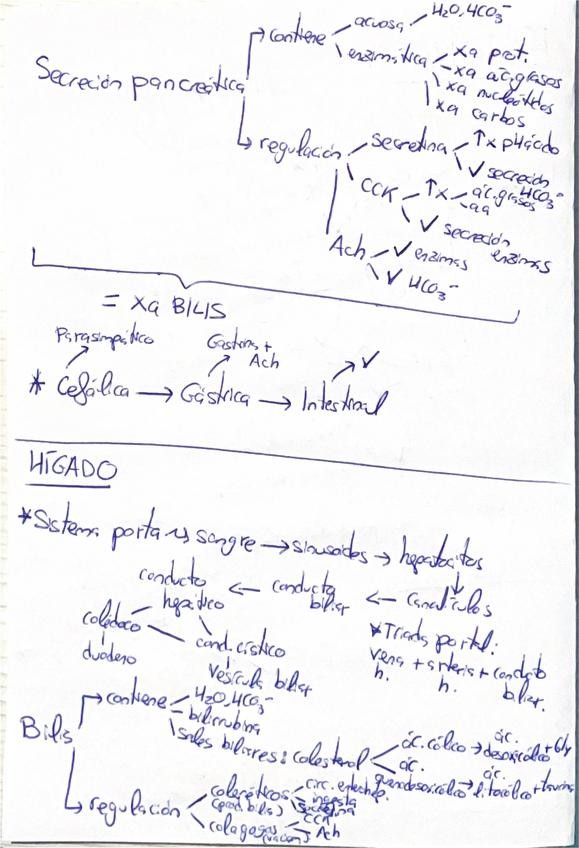 Secreción pancreática
contiene
acuosa
H₂O, HCO₃⁻
enzimática
xa prot.
xa ác. grasos
xa nucleótidos
xa carbos
regulación
secretina
↑x pH ácido
✓ secreción HCO₃⁻
CCK
↑x
ác. grasos
aa
✓ secreción enzimas
Ach
✓ enzimas
✓ HCO₃⁻
= xa BILIS
Parasimpático
Gastrina + Ach
✓
* Cefálica → Gástrica → Intestinal
HÍGADO
* Sistema porta → sangre → sinusoides → hepatocitos
conducto hepático ← conducto biliar ← canalículos
colédoco
duodeno
cond. cístico
vesícula biliar
* Triada portal:
vena h. + arteria h. + conducto biliar.
Bilis
contiene
H₂O, HCO₃⁻
bilirrubina
sales biliares: colesterol
ác. cólico → ác. desoxicólico + Gly
ác. quenodesoxicólico → ác. litocólico + taurina
regulación
coleréticos
(prod. bilis)
circ. enterohep.
ingesta
secretina
colagogos
CCK
Ach